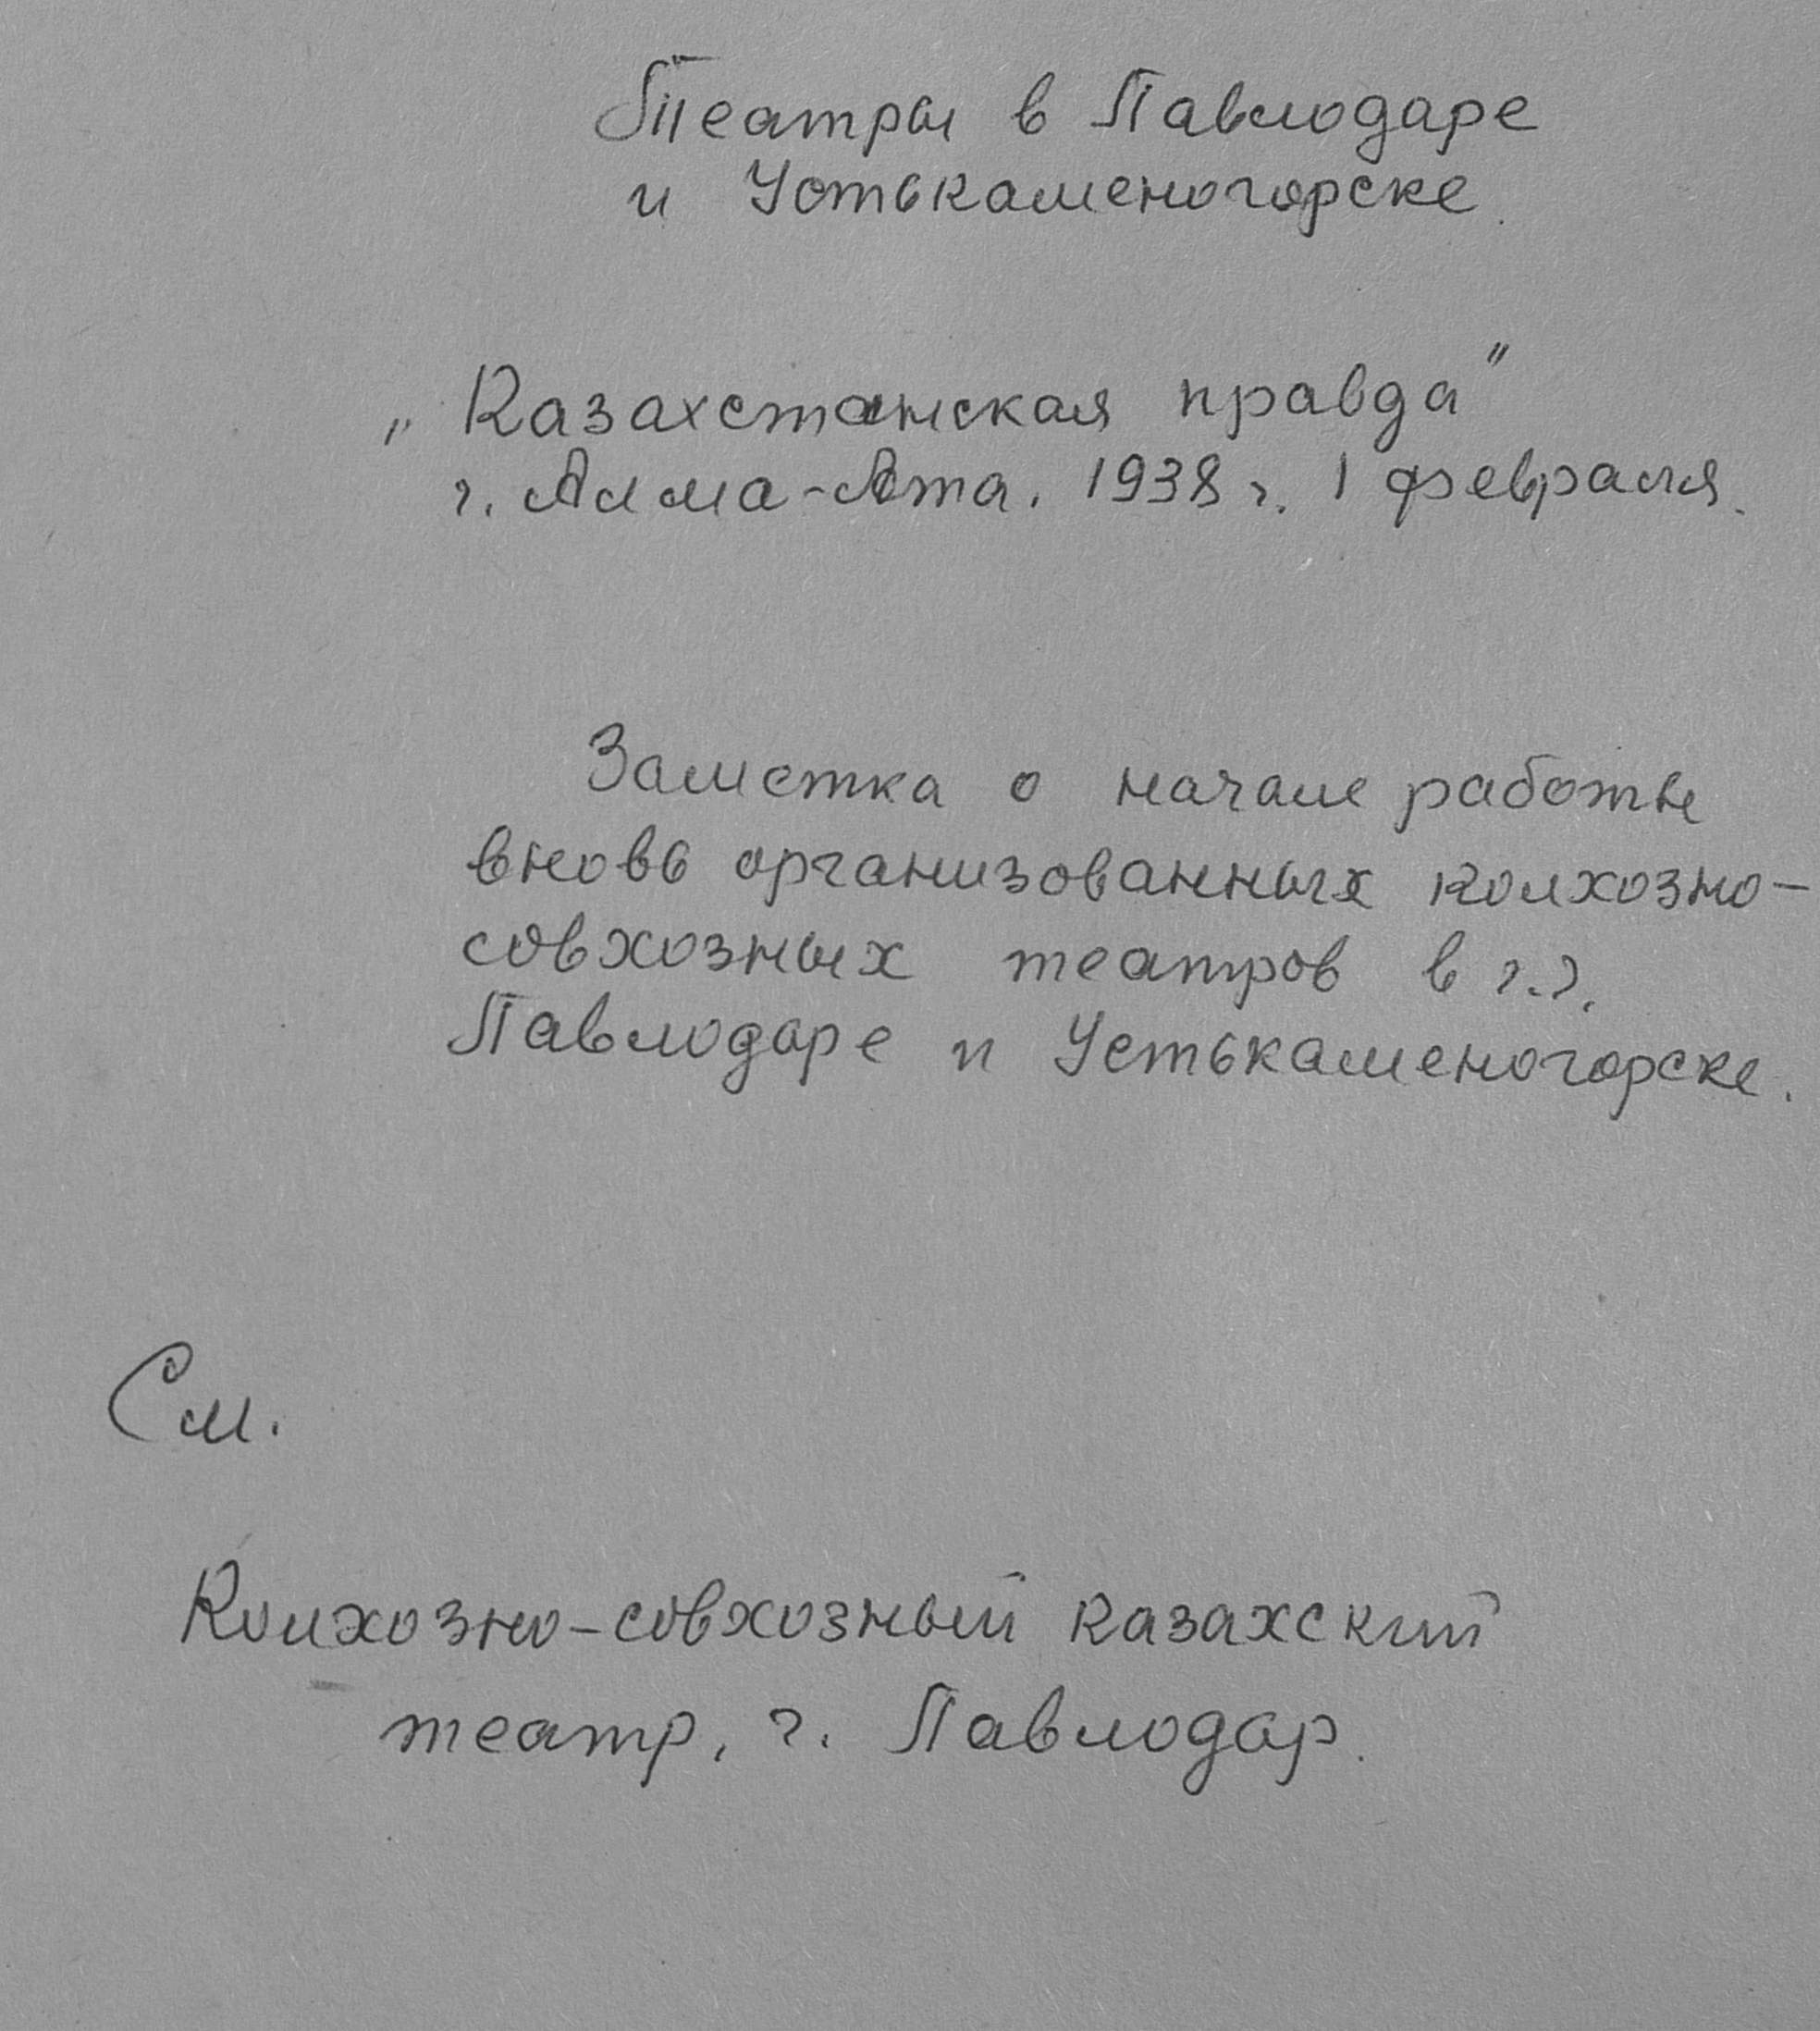 Театры в Павлодаре
и Устькаменогорске.
„Казахстанская правда"
г. Алма-Ата. 1938 г. 1 февраля.
Заметка о начале работы
вновь организованных колхозно-
совхозных театров в г.г.
Павлодаре и Устькаменогорске.
См.
Колхозно-совхозный казахский
театр, г. Павлодар.